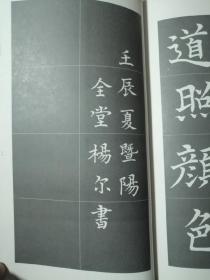 道照顔色
壬辰夏暨陽
全堂楊尔書